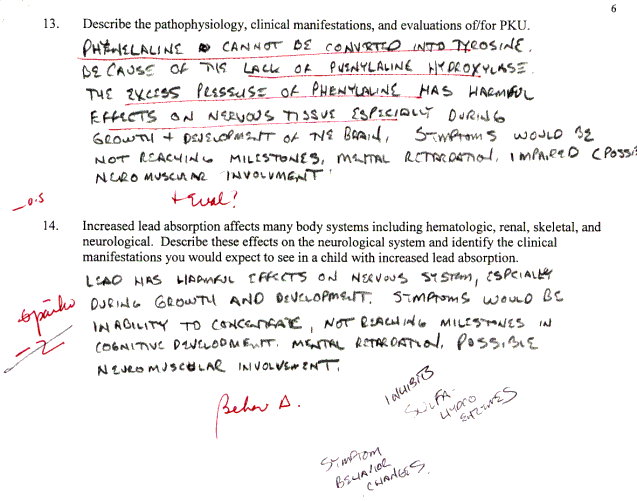 6
13. Describe the pathophysiology, clinical manifestations, and evaluations of/for PKU.
PHENELALINE CANNOT BE CONVERTED INTO TYROSINE.
BECAUSE OF THE LACK OF PHENYLALINE HYDROXYLASE.
THE EXCESS PRESSUSE OF PHENYLALINE HAS HARMFUL
EFFECTS ON NERVOUS TISSUE ESPECIALLY DURING
GROWTH + DEVELOPMENT OF THE BRAIN, SYMPTOMS WOULD BE
NOT REACHING MILESTONES, MENTAL RETARDATION, IMPAIRED (POSSI
NERO MUSCULAR INVOLUMENT
-0.5
+ Eval?
14. Increased lead absorption affects many body systems including hematologic, renal, skeletal, and
neurological. Describe these effects on the neurological system and identify the clinical
manifestations you would expect to see in a child with increased lead absorption.
LEAD HAS HARMFUL EFFECTS ON NERVOUS SYSTEM, ESPCIALLY
DURING GROWTH AND DEVELOPMENT. SYMPTOMS WOULD BE
INABILITY TO CONCENTRATE, NOT REACHING MILESTONES IN
COGNITIVE DEVELOPMENT. MENTAL RETARDATION, POSSIBLE
NEUROMUSCULAR INVOLVEMENT.
-2
Behav Δ.
INHIBITS
SULFA-
HYDRO
ENZYMES
SYMPTOM
BEHAVIOR
CHANGES.